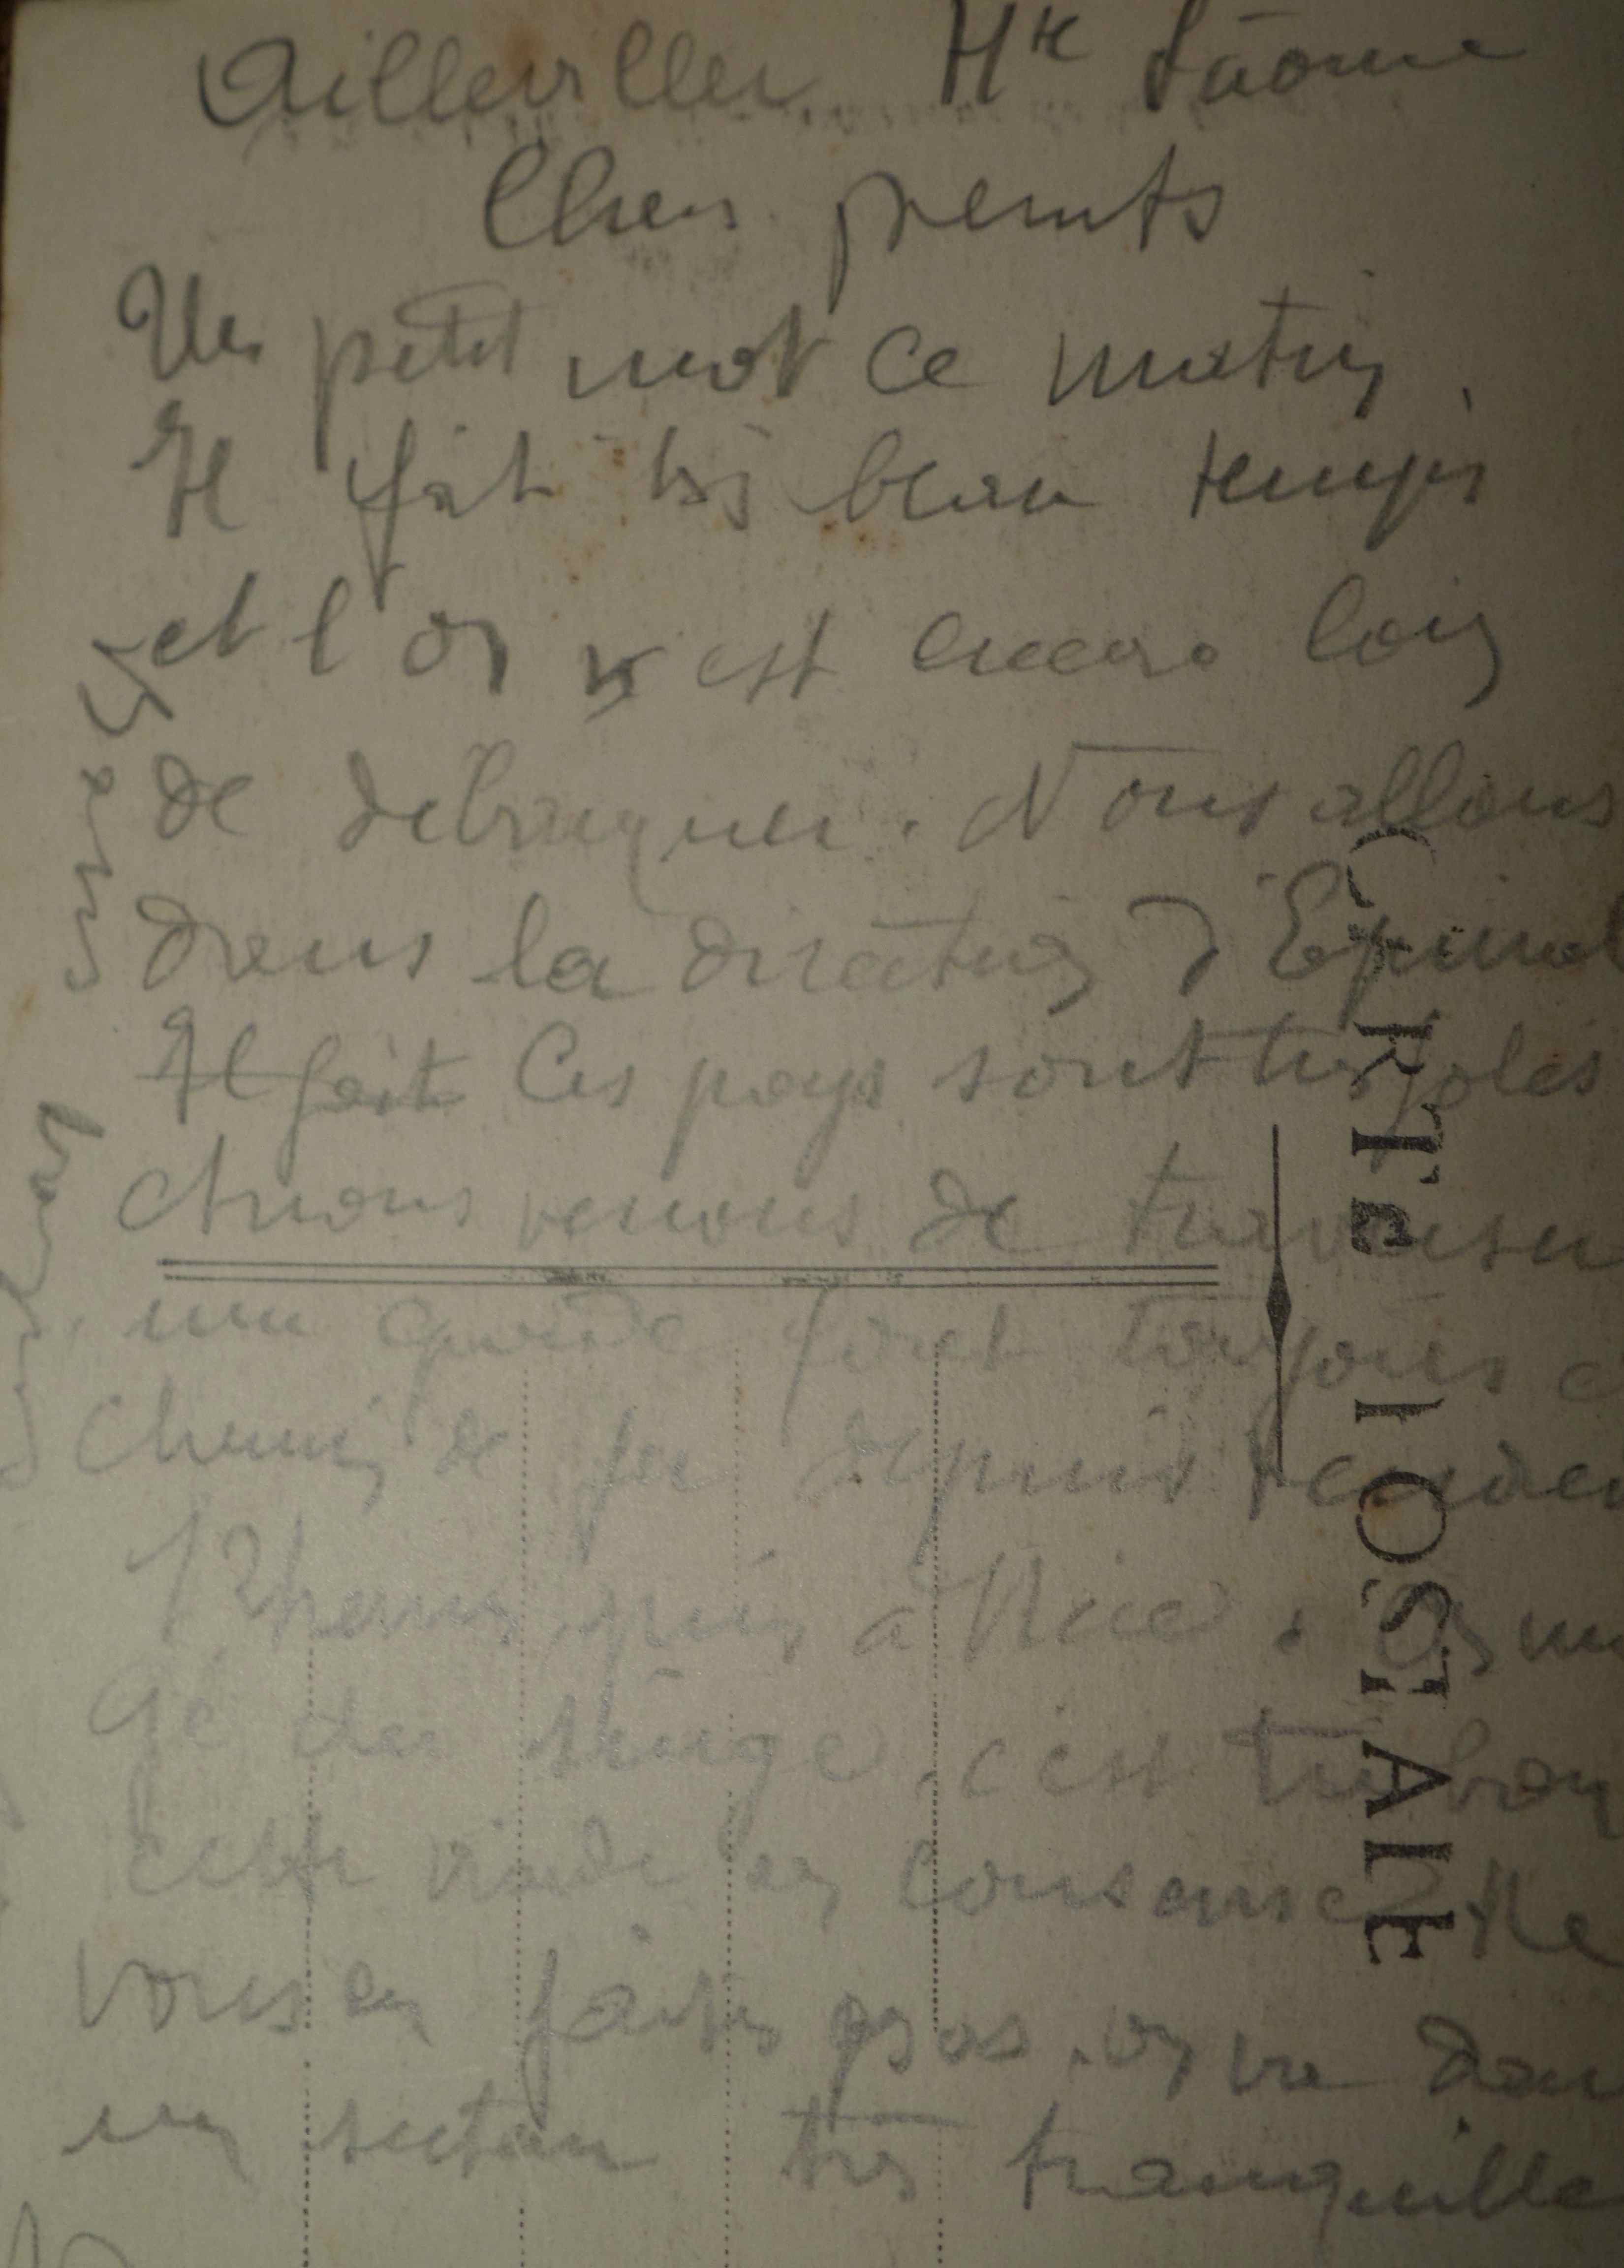 Aillevillers Hte Saône
Chers parents
Un petit mot ce matin.
Il fait très beau temps
et l'on n'est encore loin
de débarquer. Nous allons
dans la direction d'Epinal
Il fait Ces pays sont très jolis
et nous venons de traverser
une grande foret toujours
chemin de fer depuis
puis à Nice. On
gé du singe, c'est très bon
cette viande en conserve Ne
vous en faites pas. on va dans
un secteur très tranquille
CARTE POSTALE